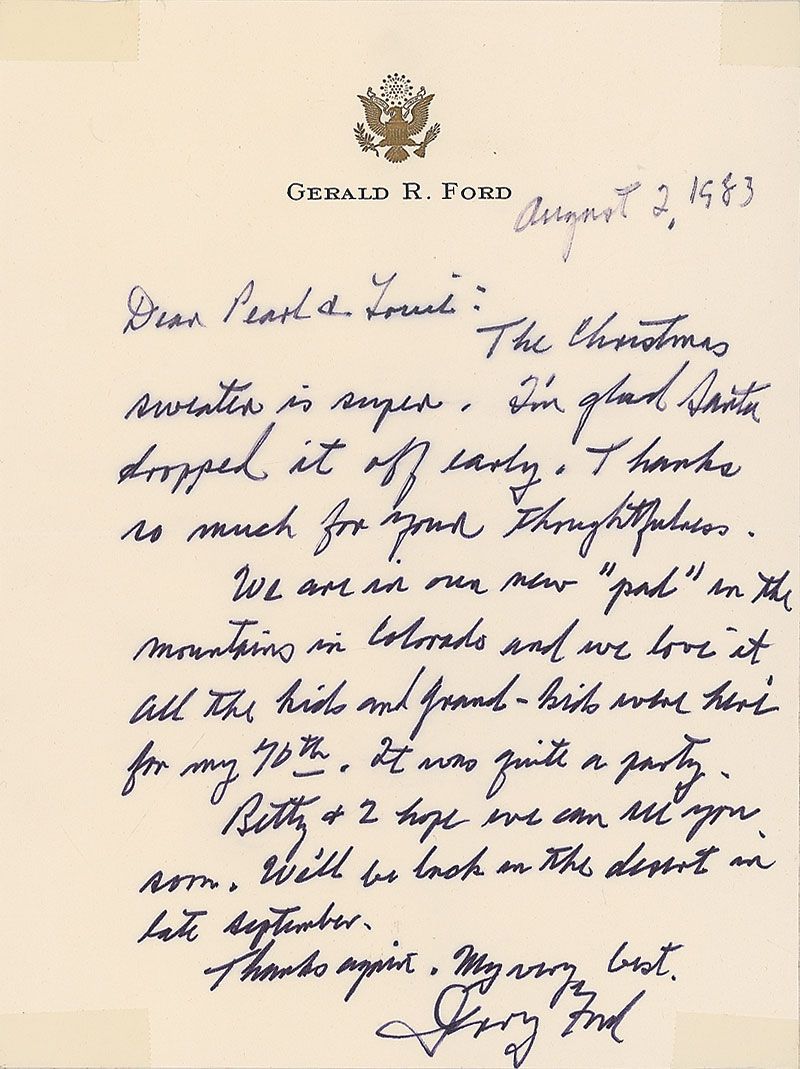 GERALD R. FORD
August 2, 1983
Dear Pearl & Louie:
The Christmas
sweater is super. I'm glad Santa
dropped it off early. Thanks
so much for your thoughtfulness.
We are in our new "pad" in the
mountains in Colorado and we love it
All the kids and grand-kids were here
for my 70th. It was quite a party.
Betty & I hope we can see you
soon. We'll be back in the desert in
late September.
Thanks again. My very best.
Jerry Ford